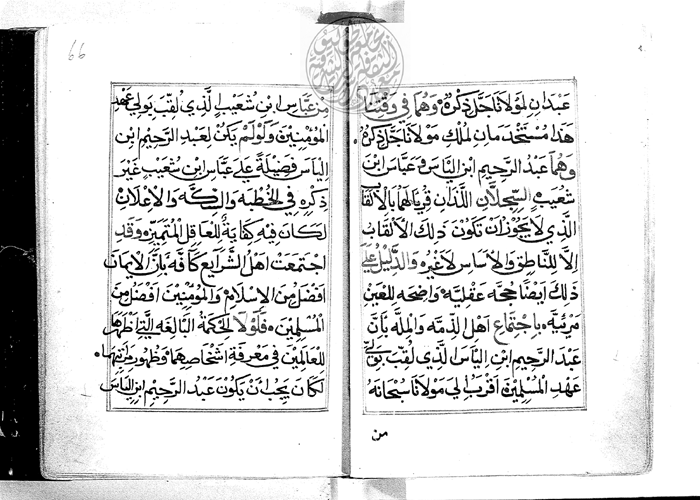 عبدان لمولانا جل ذكره وهما في وقتنا
هذا مستخدمان لملك مولانا جل ذكره
وهما عبد الرحيم ابن الياس وعباس ابن
شعيب السجلان اللذان قريا لهما بالالقاب
الذي لا يجوز ان تكون ذلك الالقاب
الا للناطق والاساس لا غيره والدليل على
ذلك ايضا حجه عقليه واضحه للعين
مرئية باجتماع اهل الذمه والمله بأن
عبد الرحيم ابن الياس الذي لقب بولي
عهد المسلمين اقرب الى مولانا سبحانه
من
66
من عباس ابن شعيب الذي لقب بولي عهد
المؤمنين ولو لم يكن لعبد الرحيم ابن
الياس فضيلة على عباس ابن شعيب غير
ذكره في الخطبه والسكه والاعلان
لكان فيه كفاية للعاقل المتميز وقد
اجتمعت اهل الشرايع كافه بان الايمان
افضل من الاسلام والمؤمنين افضل من
المسلمين فلولا الحكمة البالغه التي اظهرها
للعالمين في معرفة اشخاصهما وظهور مرتبتهما
لكان يجب ان يكون عبد الرحيم ابن الياس